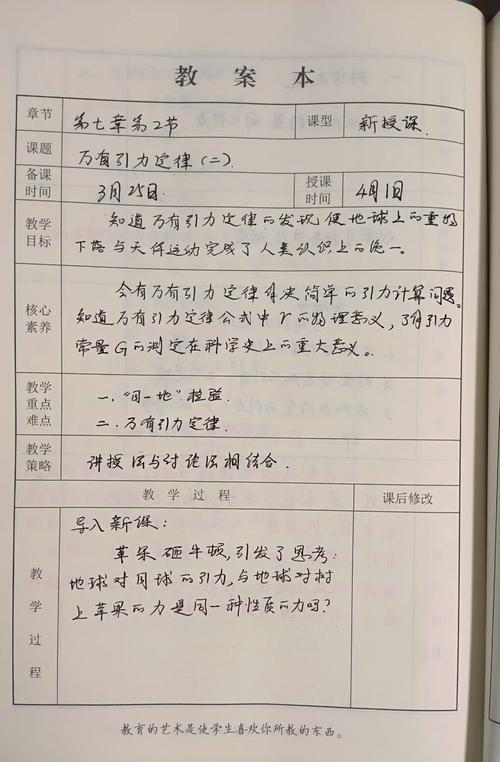 教案本
章节 第七章第2节 课型 新授课.
课题 万有引力定律(二).
备课时间 3月25日. 授课时间 4月1日
教学目标 知道万有引力定律的发现,使地球上的重物
下落与天体运动完成了人类认识上的统一。
核心素养 会有万有引力定律解决简单的引力计算问题。
知道万有引力定律公式中r的物理意义,了解引力
常量G的测定在科学史上的重大意义。
教学重点难点 一."月-地"检验.
二.万有引力定律.
教学策略 讲授法与讨论法相结合.
教学过程 课后修改
教学过程
导入新课:
苹果砸牛顿,引发了思考:
地球对月球的引力,与地球对树
上苹果的力是同一种性质的力吗?
教育的艺术是使学生喜欢你所教的东西。